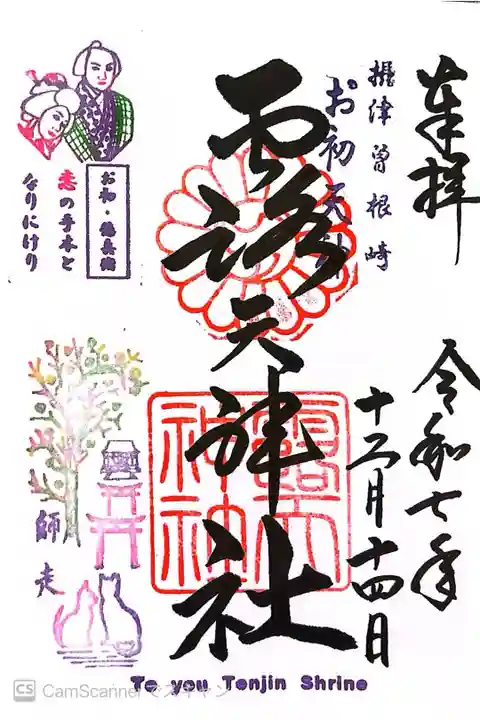 奉拝
令和七年
十二月十四日
摂津曽根崎
お初天神
露天神社
露天
神社
お初・徳兵衛
恋の手本と
なりにけり
師走
To you Tenjin Shrine
CS CamScanner でスキャン